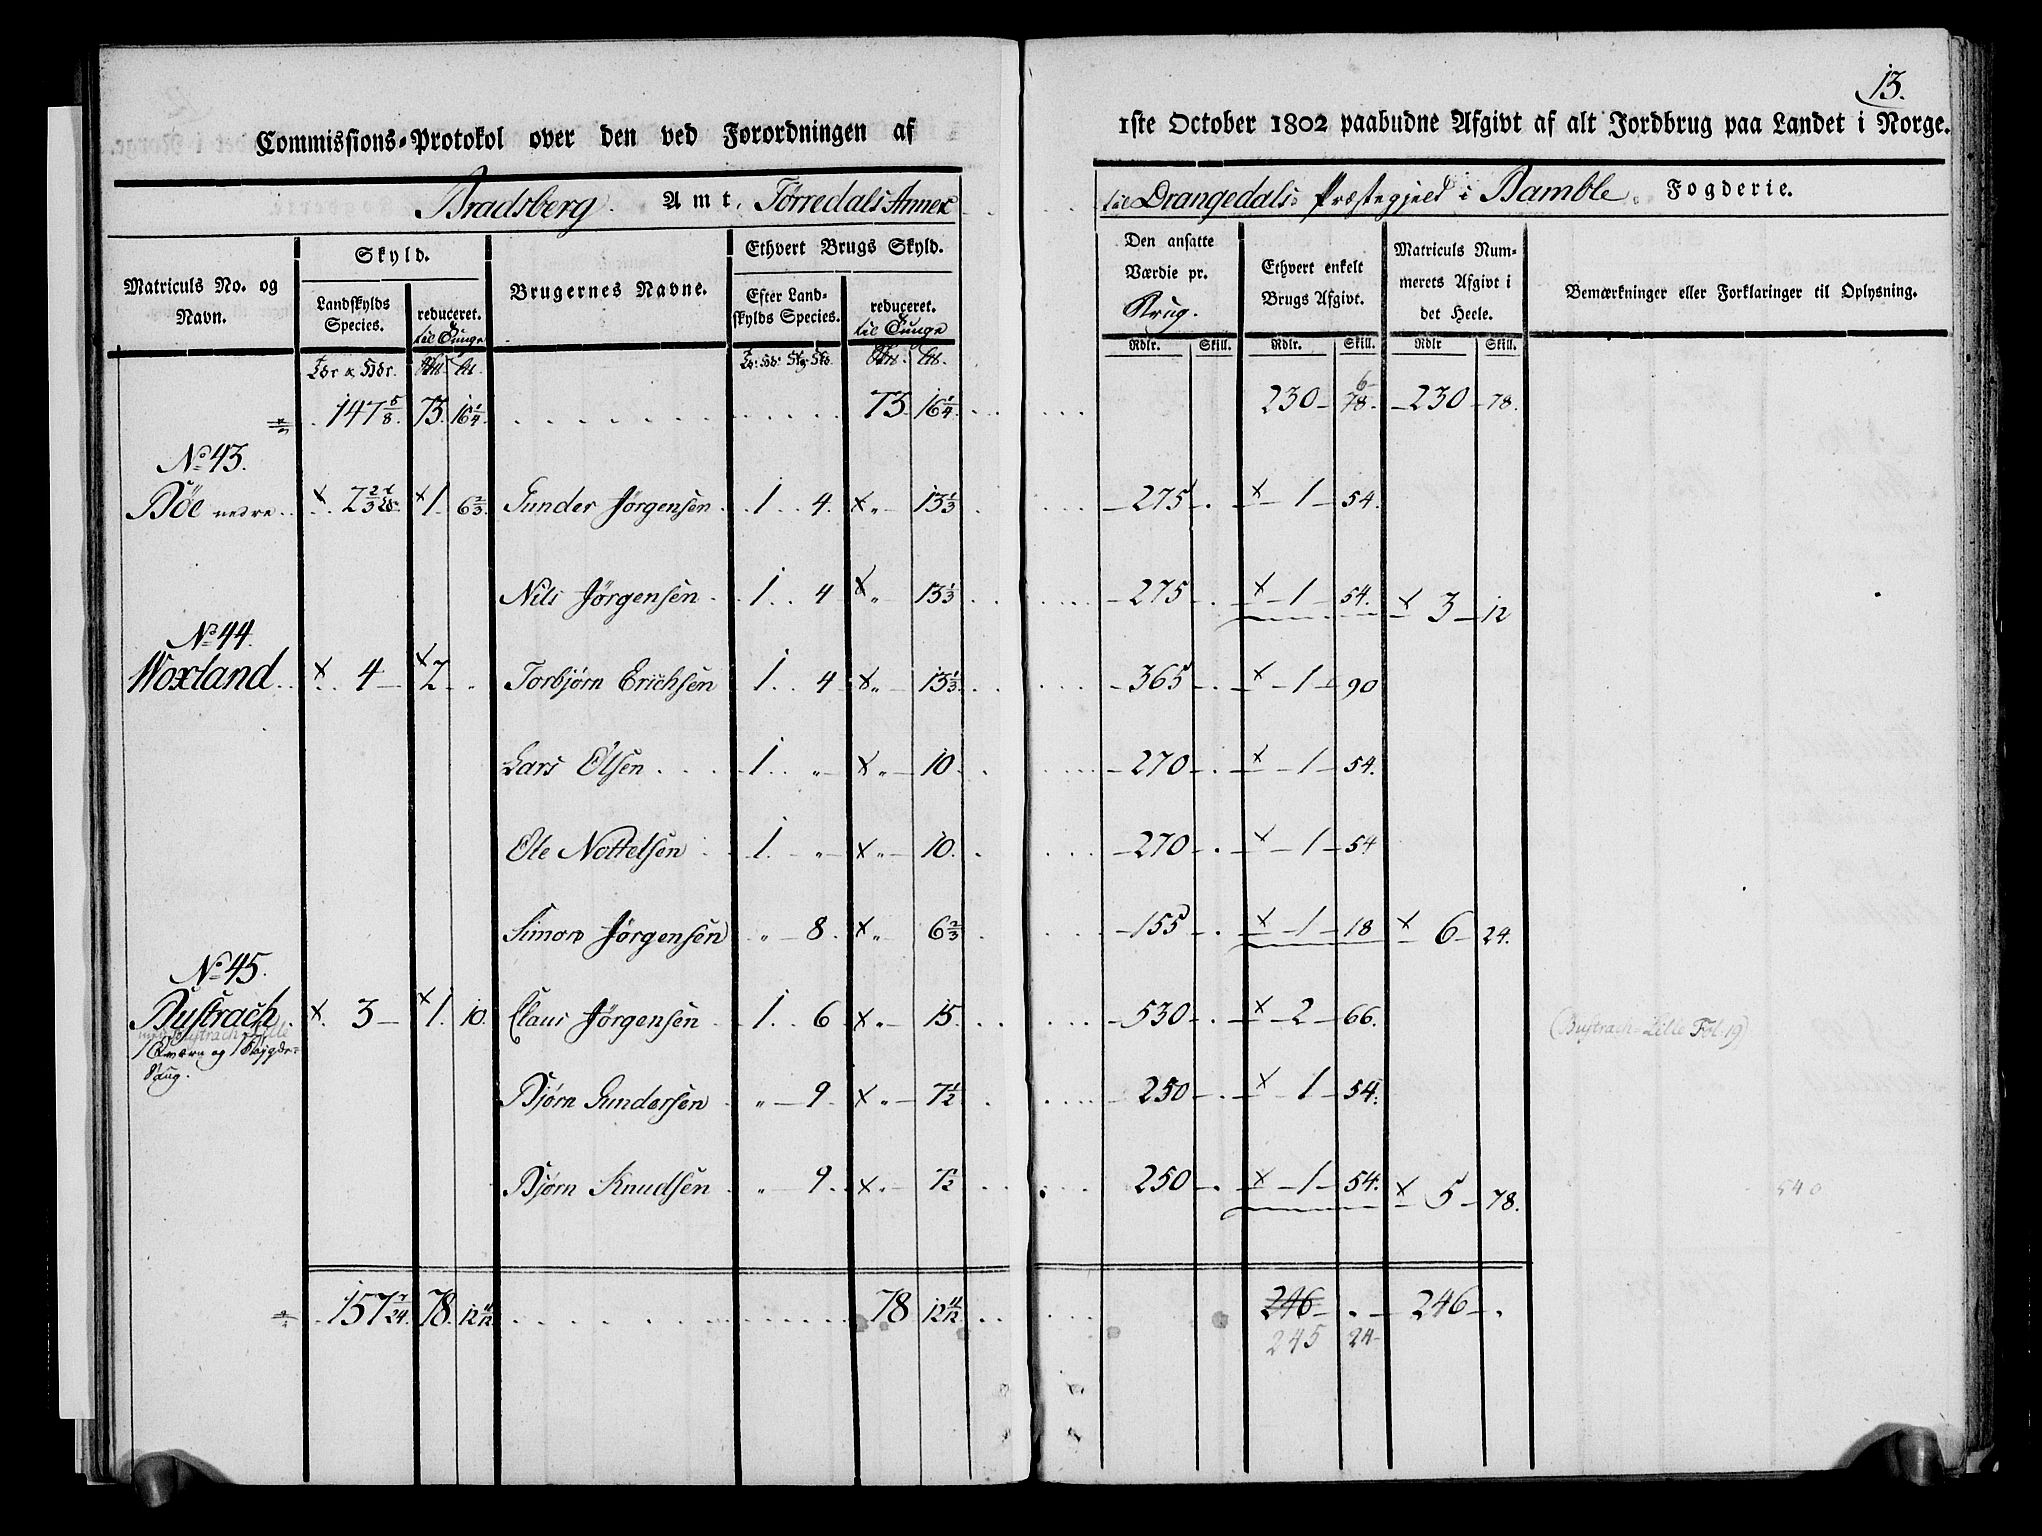 13.
Commissions-Protokol over den ved Forordningen af 1ste October 1802 paabudne Afgivt af alt Jordbrug paa Landet i Norge.
Bradsberg Amt, Törredals Annex til Drangedals Præstegjeld i Bamble Fogderie.
Matriculs No. og Navn. Skyld. Brugernes Navne. Ethvert Brugs Skyld. Den ansatte Værdie pr. Brug. Ethvert enkelt Brugs Afgivt. Matriculs Nummerets Afgivt i det Heele. Bemærkninger eller Forklaringer til Oplysning.
Landskylds Species. reduceret. til Tunge Efter Landskylds Species. reduceret. til Tunge
Rdlr. Skill. Rdlr. Skill. Rdlr Skill.
147 5/8. 73. 16 1/4. 73 16 1/4. 230 - 78. 6 - 230 - 78.
No 43.
Böe nedre x 7 2/3 x 1 6 2/3 Gunder Jørgensen 1 4 x " 13 1/3 275 x 1 - 54.
Nils Jørgensen 1 4 x " 13 1/3 275 x 1 - 54. x 3 - 12
No 44.
Woxland x 4 x 2 " Torbjørn Erichsen 1 4 x " 13 1/3 365 x 1 - 90
Lars Olsen 1 " x " 10 270 x 1 - 54.
Ole Nottelsen 1 " x " 10. 270 x 1 - 54
Simon Jørgensen " 8. x " 6 2/3 155 x 1 - 18 x 6 - 24.
No 45.
Bustrach x 3 x 1. 10. Claus Jørgensen 1 6 x " 15. 530 x 2 - 66. (Bustrach-Lille Fol. 19)
med Bustrach Lille
1 Qværn og 1 Bøygde-
Saug.
Bjørn Gundersen " 9 x " 7 1/2 250 x 1 - 54.
Bjørn Knudsen " 9 x " 7 1/2 250 x 1 - 54. x 5 - 78. 540
157 7/24. 78. 12 11/12 78 12 11/12 246 - . - 246 - .
245 24 -